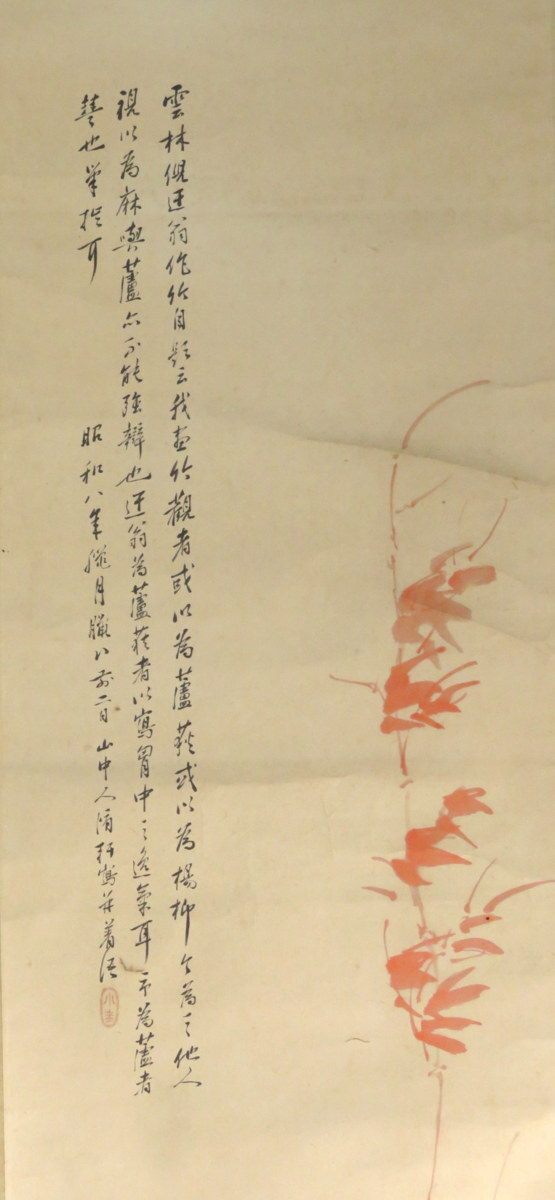 雲林倪迂翁作竹自題云我畫竹觀者或以為蘆荻或以為楊柳今為之他人
視以為麻與蘆亦不能強辯也迂翁為蘆荻者以寫胸中之逸氣耳予為蘆者
也筆拙耳
昭和八年臘月臘八前二日山中人清軒寫并着語